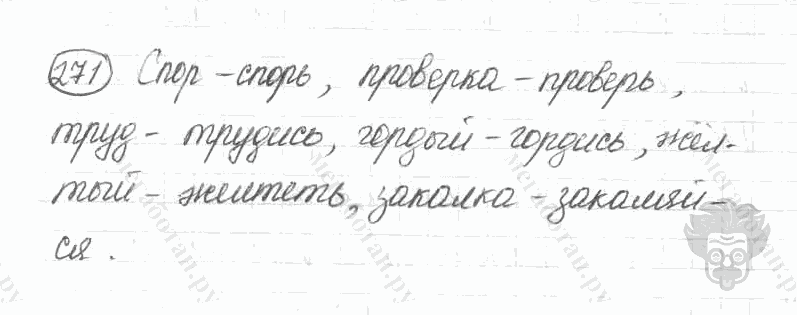 271 Спор - спорь, проверка - проверь,
труд - трудись, гордый - гордись, жёл-
тый - желтеть, закалка - закаляй-
ся.